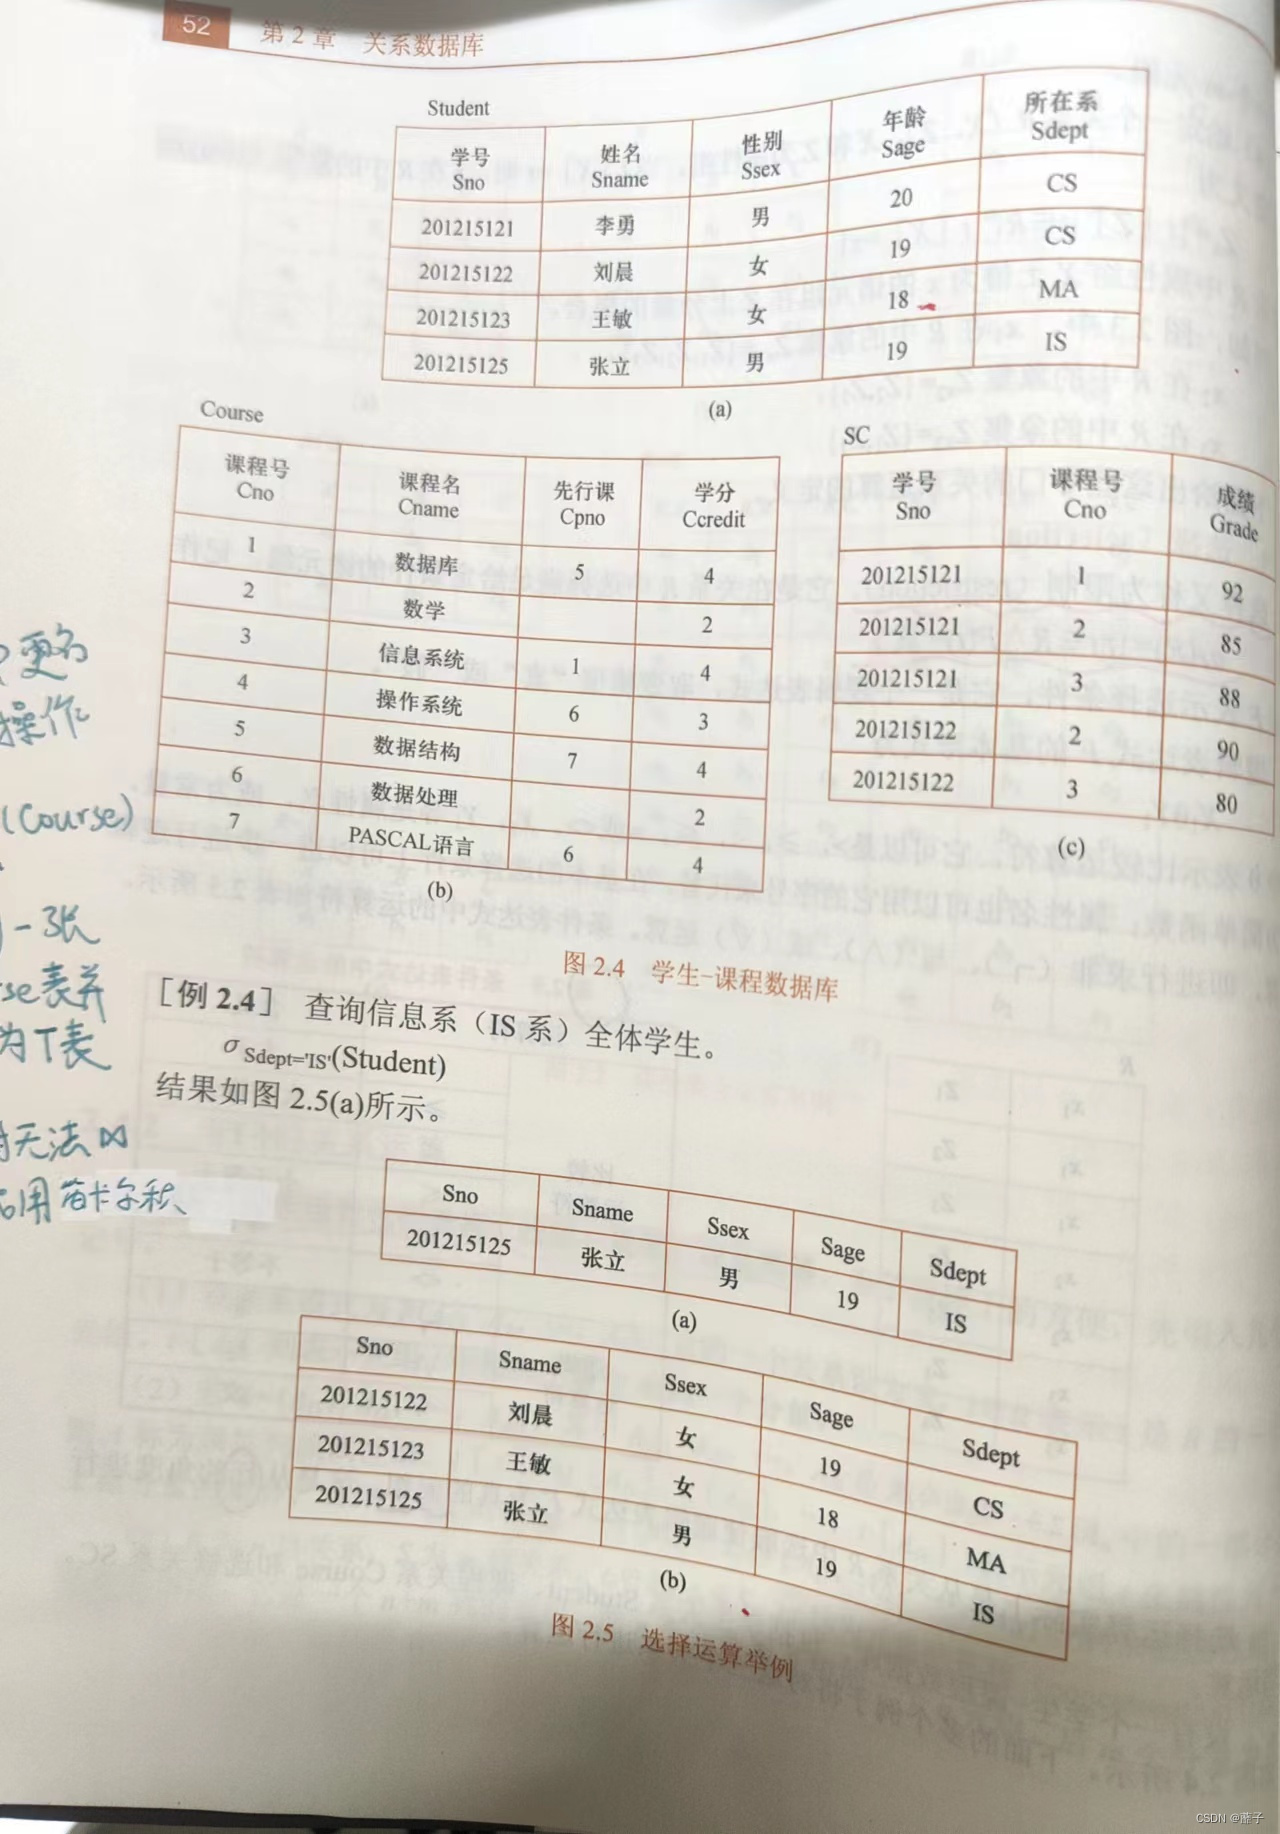 52 第 2 章 关系数据库
Student
学号 Sno 姓名 Sname 性别 Ssex 年龄 Sage 所在系 Sdept
201215121 李勇 男 20 CS
201215122 刘晨 女 19 CS
201215123 王敏 女 18 MA
201215125 张立 男 19 IS
(a)
Course
课程号 Cno 课程名 Cname 先行课 Cpno 学分 Ccredit
1 数据库 5 4
2 数学 2
3 信息系统 1 4
4 操作系统 6 3
5 数据结构 7 4
6 数据处理 2
7 PASCAL语言 6 4
(b)
SC
学号 Sno 课程号 Cno 成绩 Grade
201215121 1 92
201215121 2 85
201215121 3 88
201215122 2 90
201215122 3 80
(c)
图 2.4 学生-课程数据库
[例 2.4] 查询信息系（IS 系）全体学生。
σ Sdept='IS'(Student)
结果如图 2.5(a)所示。
Sno Sname Ssex Sage Sdept
201215125 张立 男 19 IS
(a)
Sno Sname Ssex Sage Sdept
201215122 刘晨 女 19 CS
201215123 王敏 女 18 MA
201215125 张立 男 19 IS
(b)
图 2.5 选择运算举例
更名
操作
(Course)
一张
se表并
为T表
无法⋈
用笛卡尔积、
CSDN @蘸子